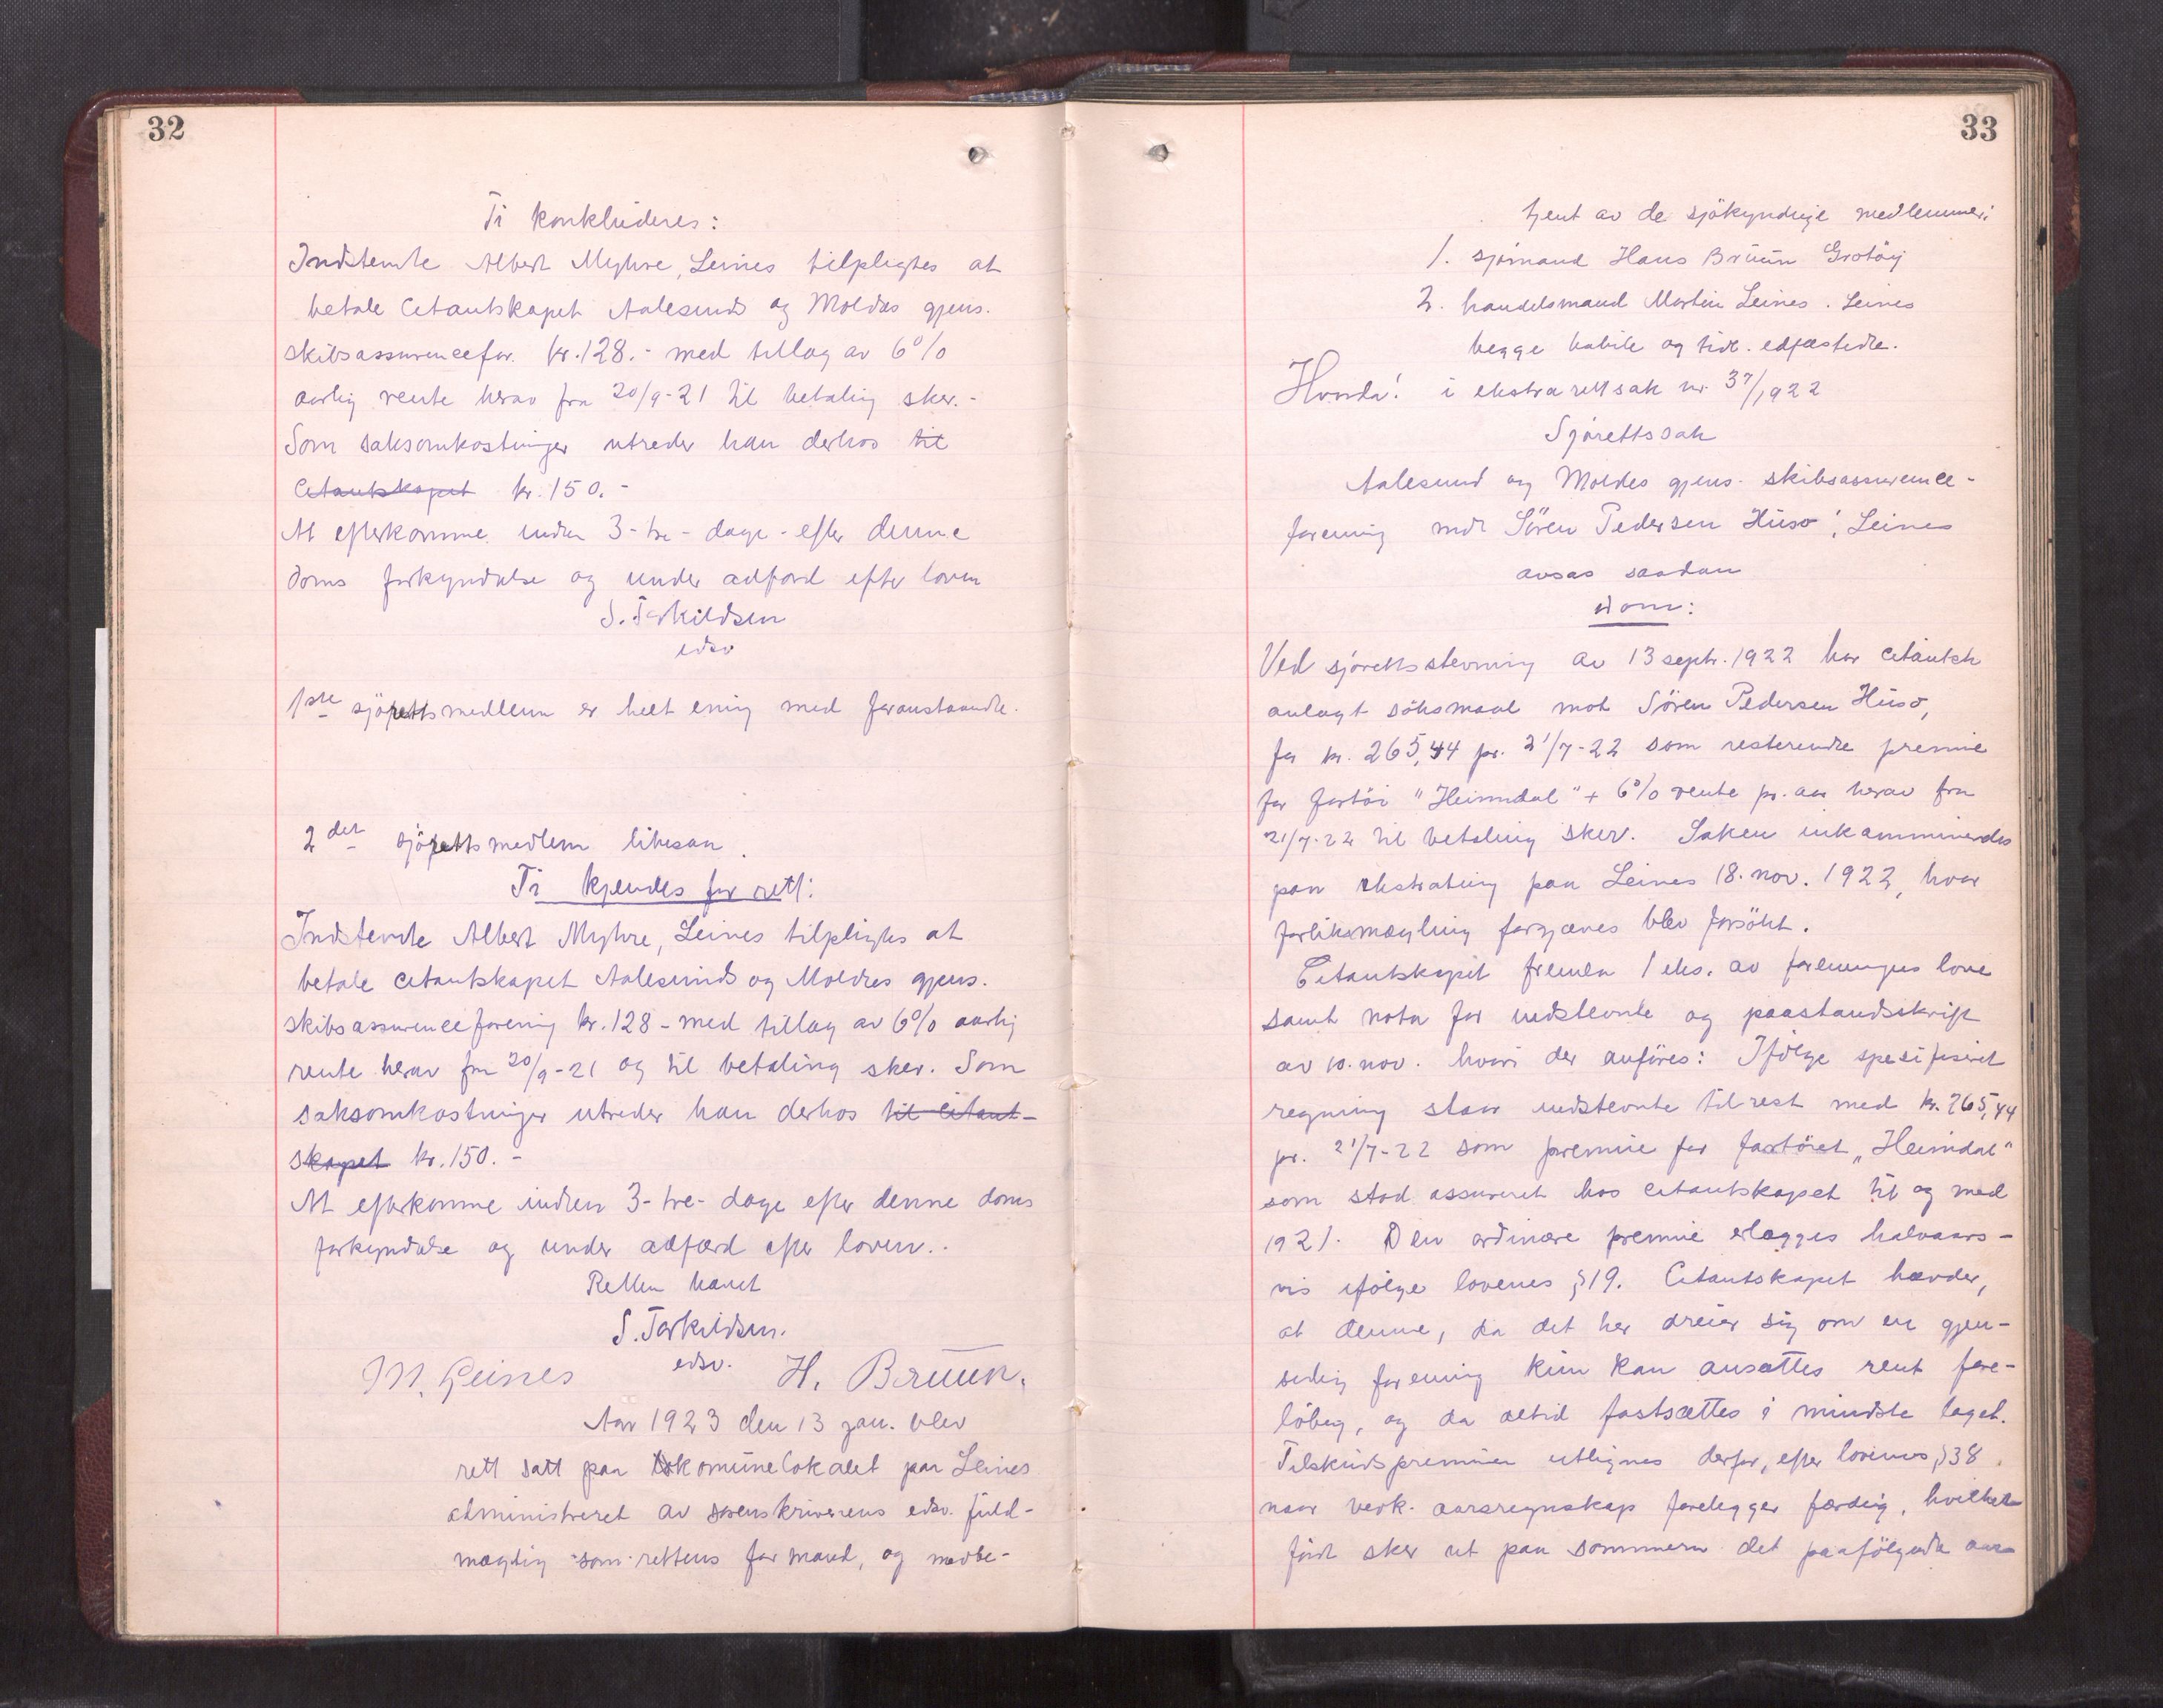 32
Ti konkluderes:
Indstevnte Albert Myhre, Leines tilpligtes at
betale Citantskapet Aalesunds og Moldes gjens.
skibsassurencefor. kr. 128.- med tillæg av 6%
aarlig rente herav fra 20/9-21 til betaling sker.-
Som saksomkostninger utreder han derhos til
Citantskapet kr. 150.-
At efterkomme inden 3-tre-dage-efter denne
doms forkyndelse og under adfærd efter loven
S. Torkildsen
edsv
1ste sjörettsmedlem er helt enig med foranstaaende.
2den sjörettsmedlem likesaa.
Ti kjendes for rett:
Indstevnte Albert Myhre, Leines tilpligtes at
betale citantskapet Aalesunds og Moldes gjens.
skibsassurenceforening kr. 128- med tillæg av 6% aarlig
rente herav fra 20/9-21 og til betaling sker. Som
saksomkostninger utreder han derhos til citant-
skapet kr. 150.-
At efterkomme inden 3-tre-dage efter denne doms
forkyndelse og under adfærd efter loven..
Retten hævet
S. Torkildsen.
edsv.
M. Leines H. Bruun.
Aar 1923 den 13 jan. blev
rett satt paa komunelokalet paa Leines
administreret av sorenskriverens edsv. fuld-
mægtig som rettens formand, og medbe-
33
tjent av de sjökyndige medlemmer:
1. sjömand Hans Bruun Grotöy
2. handelsmand Martin Leines. Leines
begge habile og tidl. edfæstede.
Hvorda! i ekstrarettsak nr. 37/1922
Sjörettssak
Aalesund og Moldes gjens. skibsassurence-
forening mot Sören Pedersen Husö, Leines
avsas saadan
dom:
Ved sjörettsstevning av 13 septr. 1922 har citantsk
anlagt söksmaal mot Sören Pedersen Husö,
for kr. 265,44 pr. 21/7-22 som resterende premie
for fartöi "Heimdal" + 6% rente pr. aar herav fra
21/7-22 til betaling sker. Saken inkaminertes
paa ekstrating paa Leines 18. nov. 1922, hvor
forliksmægling forgjæves blev forsökt.
Citantskapet fremla 1 eks. av foreningens love
samt nota for indstevnte og paastandsskrift
av 10. nov. hvori der anföres: Ifölge spesifiseret
regning staar indstevnte til rest med kr. 265,44
pr. 21/7-22 som premie for fartöiet "Heimdal"
som stod assureret hos citantskapet til og med
1921. Den ordinære premie erlægges halvaars-
vis ifölge lovenes §19. Citantskapet hævder,
at denne, da det her dreier sig om en gjen-
sidig forening kun kan ansættes rent fore-
löbig, og da altid fastsættes i mindste laget.
Tilskudspremien utlignes derfor, efter lovenes §38,
naar vedk. aarsregnskap forelegger færdig, hvilket
först sker ut paa sommeren det paafölgende aar